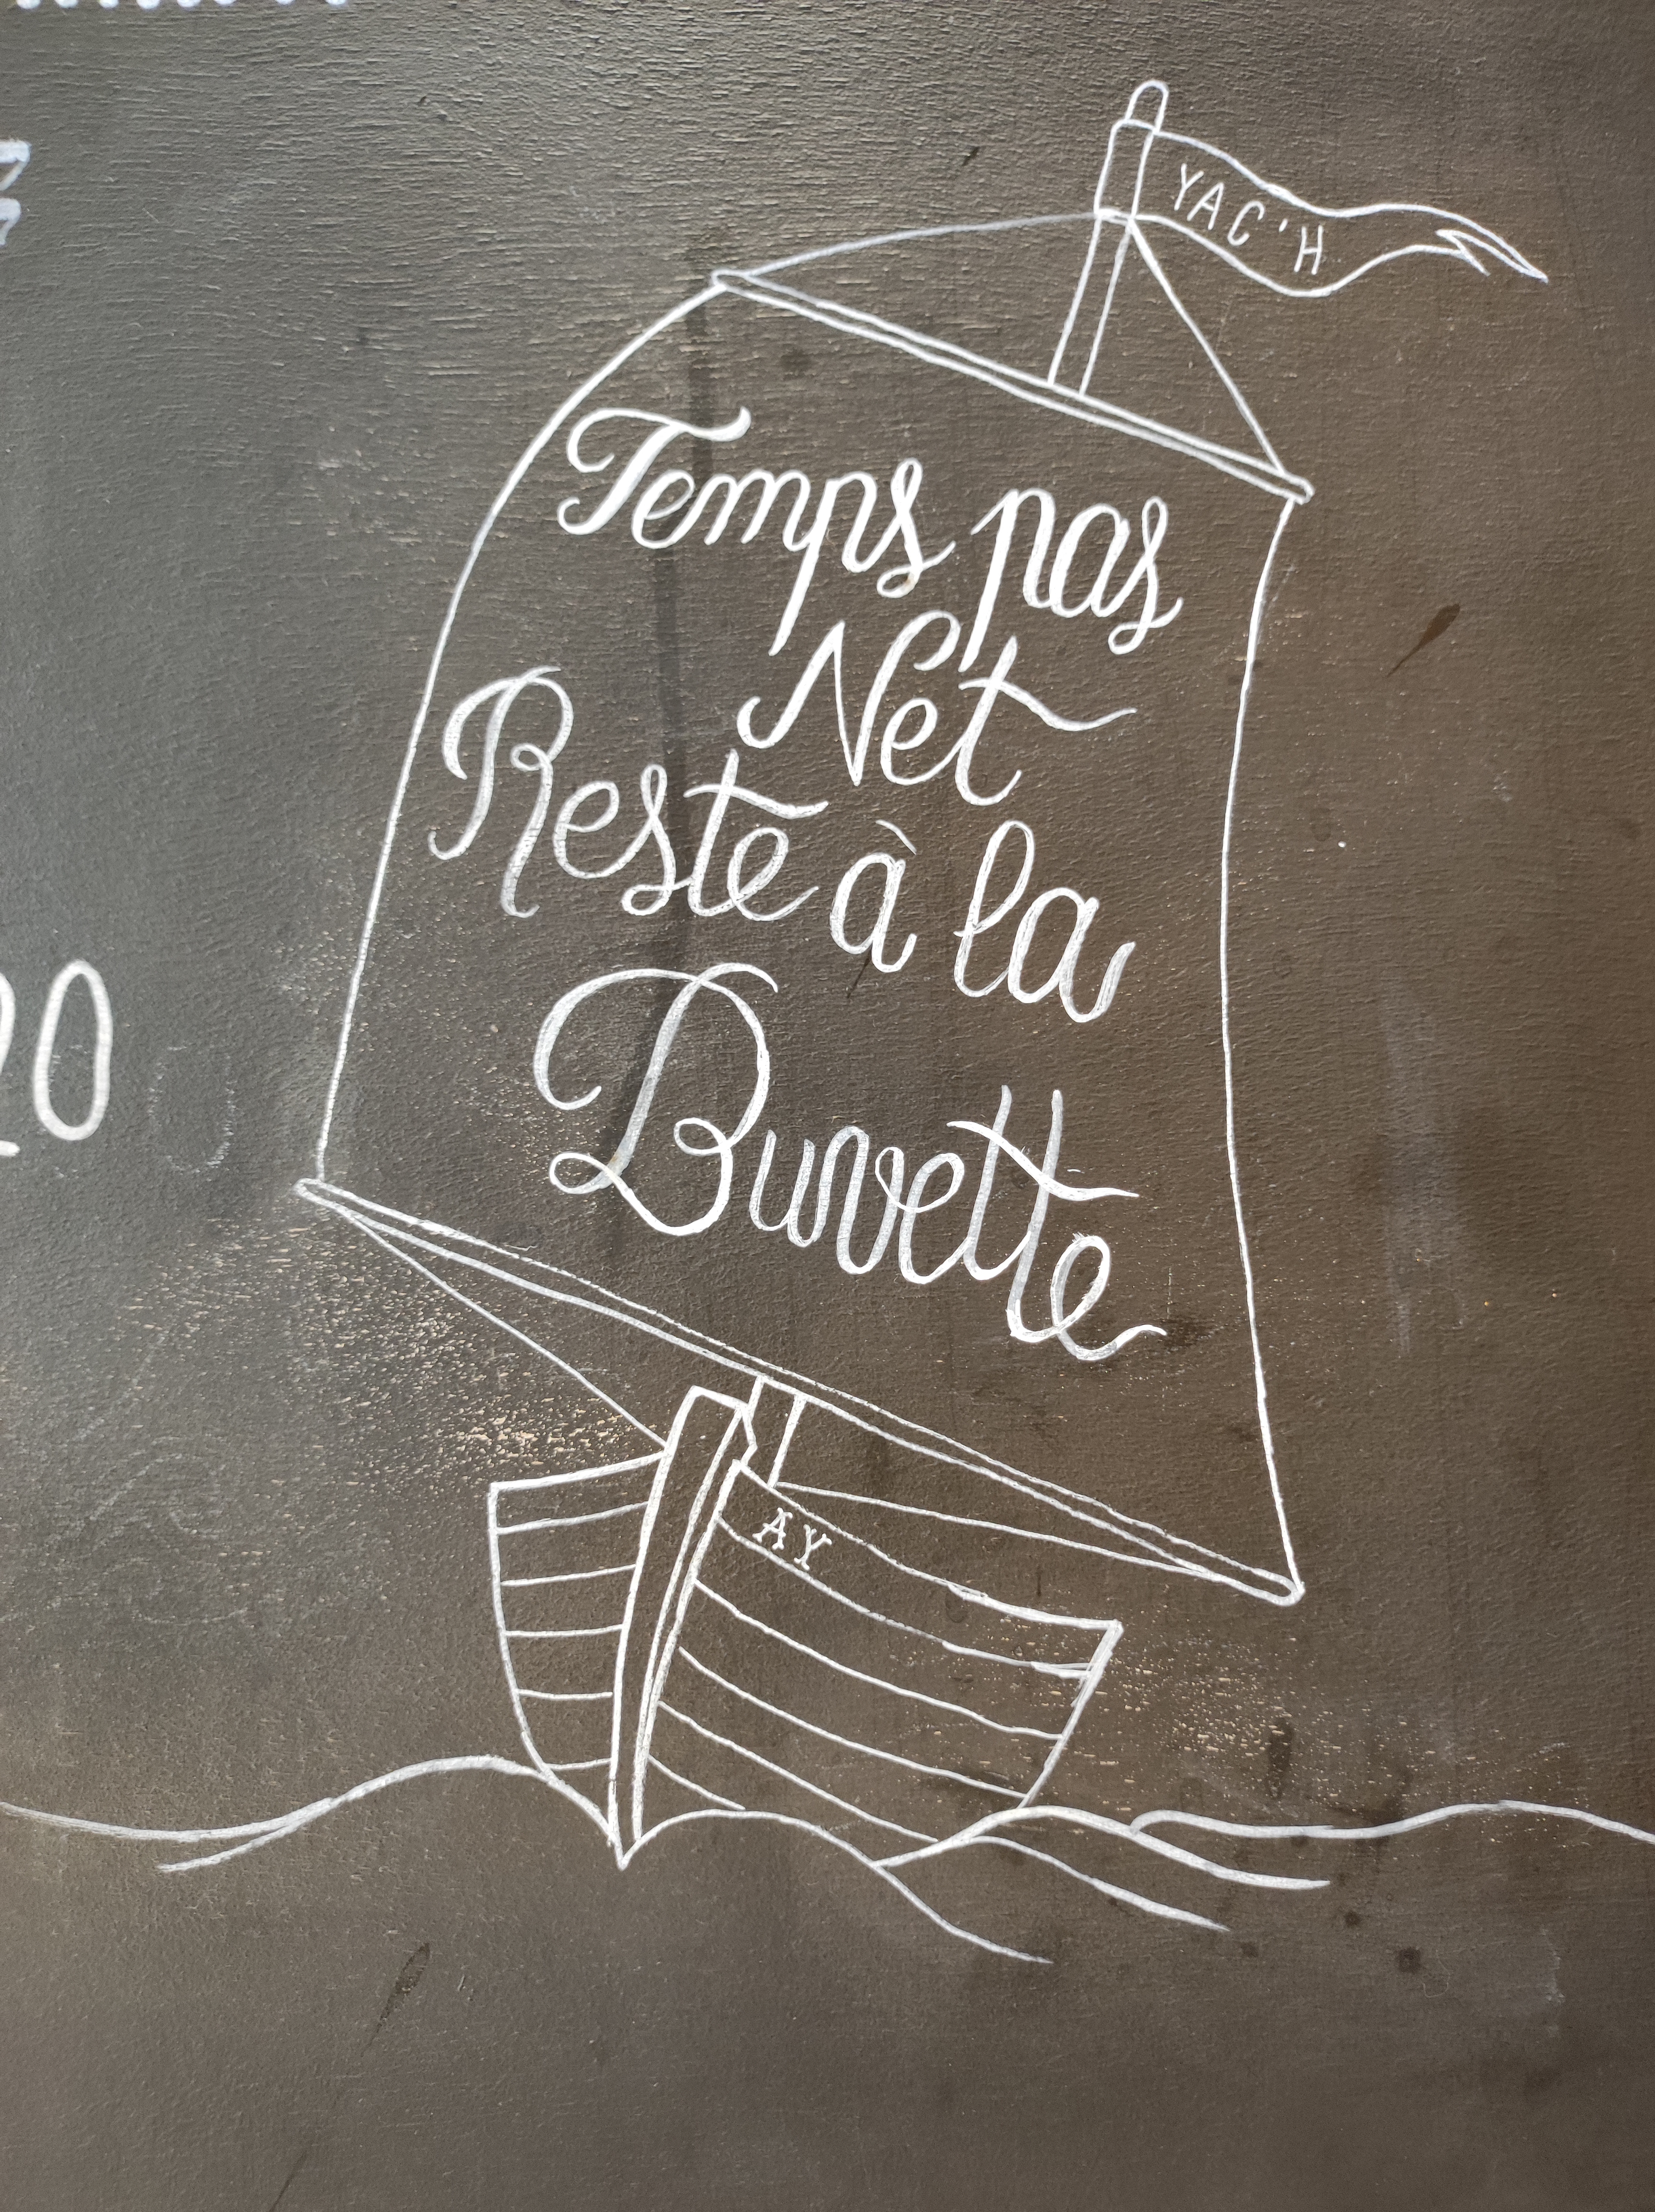 YAC'H
Temps pas
Net
Reste à la
Buvette
AY
20